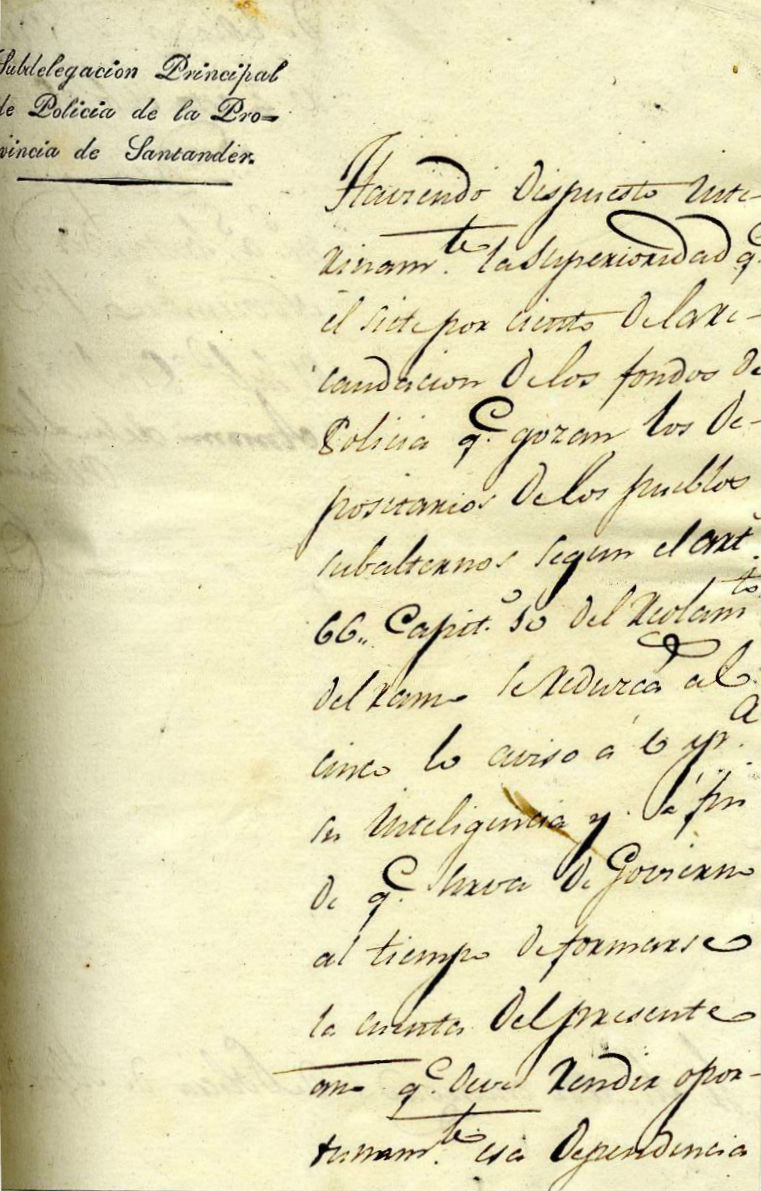 Subdelegacion Principal
de Policia de la Pro=
vincia de Santander.
Haviendo dispuesto inte-
rinam.te la Superioridad q.e
el siete por ciento de la re-
caudacion de los fondos de
Policia q.e gozan los de-
positarios de los pueblos
subalternos segun el art.
66,, Capit.o 50 del Reglam.to
del ramo se reduzca al
cinco lo aviso á V p.a
su inteligencia y á fin
de q.e sirva de Govierno
al tiempo de formarse
la cuenta del presente
año q.e deve rendir opor-
tunam.te esa dependencia